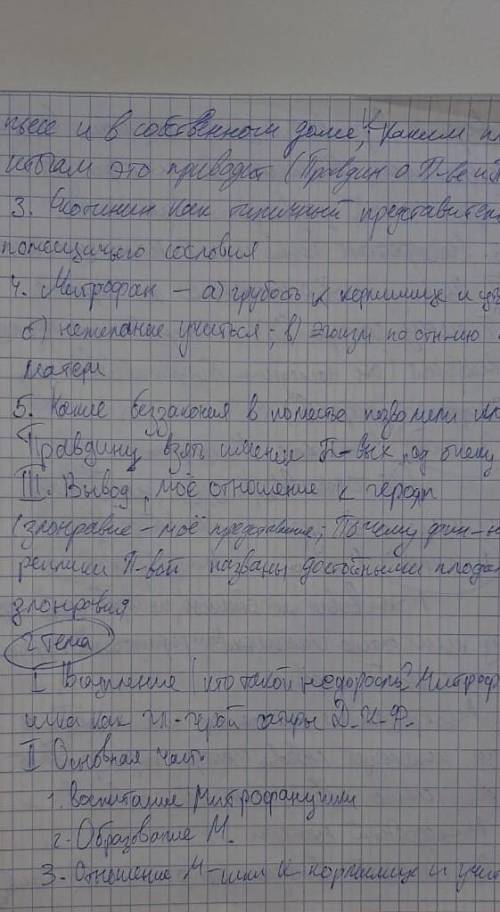 пьесе и в собственном доме, к каким
итогам это приводит (Правдин о П-ве и
3. Скотинин как типичный представител
помещичьего сословия
4. Митрофан – а) грубость к кормилице и
б) нежелание учиться; в) эгоизм по отн-ию
матери
5. Какие беззакония в поместье позволили
Правдину взять имение П-вых под опеку
III. Вывод, моё отношение к героям
(злонравие – моё представление; Почему фин-
реплики П-вой названы достойными плода
злонравия
2 тема
I Вступление (кто такой недоросль? Митроф
ушка как гл-герой сатиры Д.И.Ф.
II Основная часть
1. воспитание Митрофанушки
2. Образование М.
3. Отношение М-шки к кормилице и учит